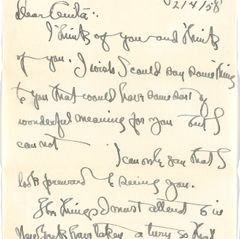 2/4/58
Dear Anita:
I think of you and think
of you. I wish I could say something
to you that would have some sort of
wonderful meaning for you but I
can not
I can only you that I
look forward to seeing you.
The things I must attend to in
New York have taken a turn so that